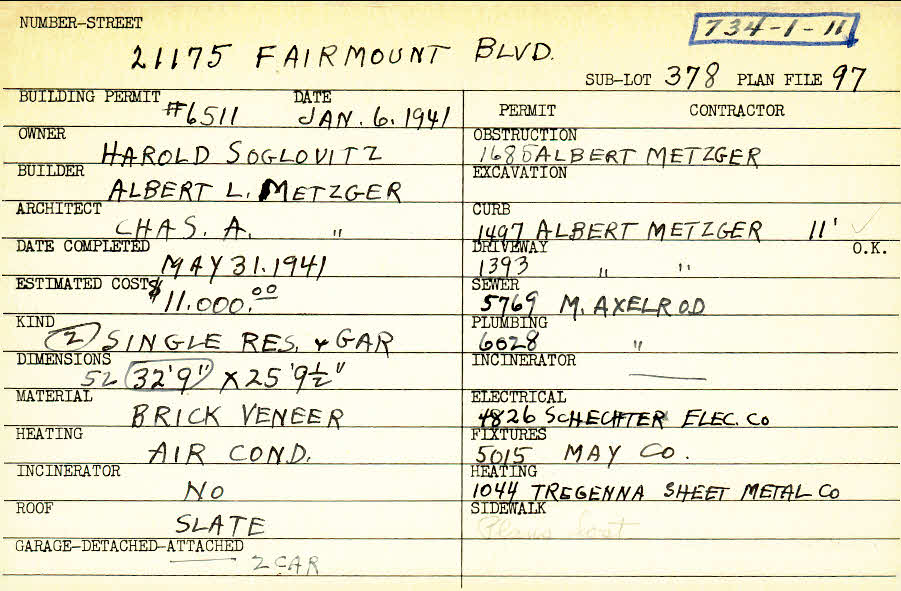 NUMBER-STREET
734-1-11
21175 FAIRMOUNT BLVD.
SUB-LOT 378 PLAN FILE 97
BUILDING PERMIT #6511 DATE JAN. 6. 1941
PERMIT CONTRACTOR
OWNER
HAROLD SOGLOVITZ
BUILDER
ALBERT L. METZGER
ARCHITECT
CHAS. A. "
DATE COMPLETED
MAY 31. 1941
ESTIMATED COST
$11.000.00
KIND
(2) SINGLE RES. & GAR
DIMENSIONS
52 32'9" X 25'9½"
MATERIAL
BRICK VENEER
HEATING
AIR COND.
INCINERATOR
NO
ROOF
SLATE
GARAGE-DETACHED-ATTACHED
2 CAR
OBSTRUCTION
1685 ALBERT METZGER
EXCAVATION
CURB
1497 ALBERT METZGER 11' ✓
DRIVEWAY O.K.
1393 " "
SEWER
5769 M. AXELROD
PLUMBING
6028 "
INCINERATOR
ELECTRICAL
4826 SCHECHTER ELEC. CO
FIXTURES
5015 MAY CO.
HEATING
1044 TREGENNA SHEET METAL CO
SIDEWALK